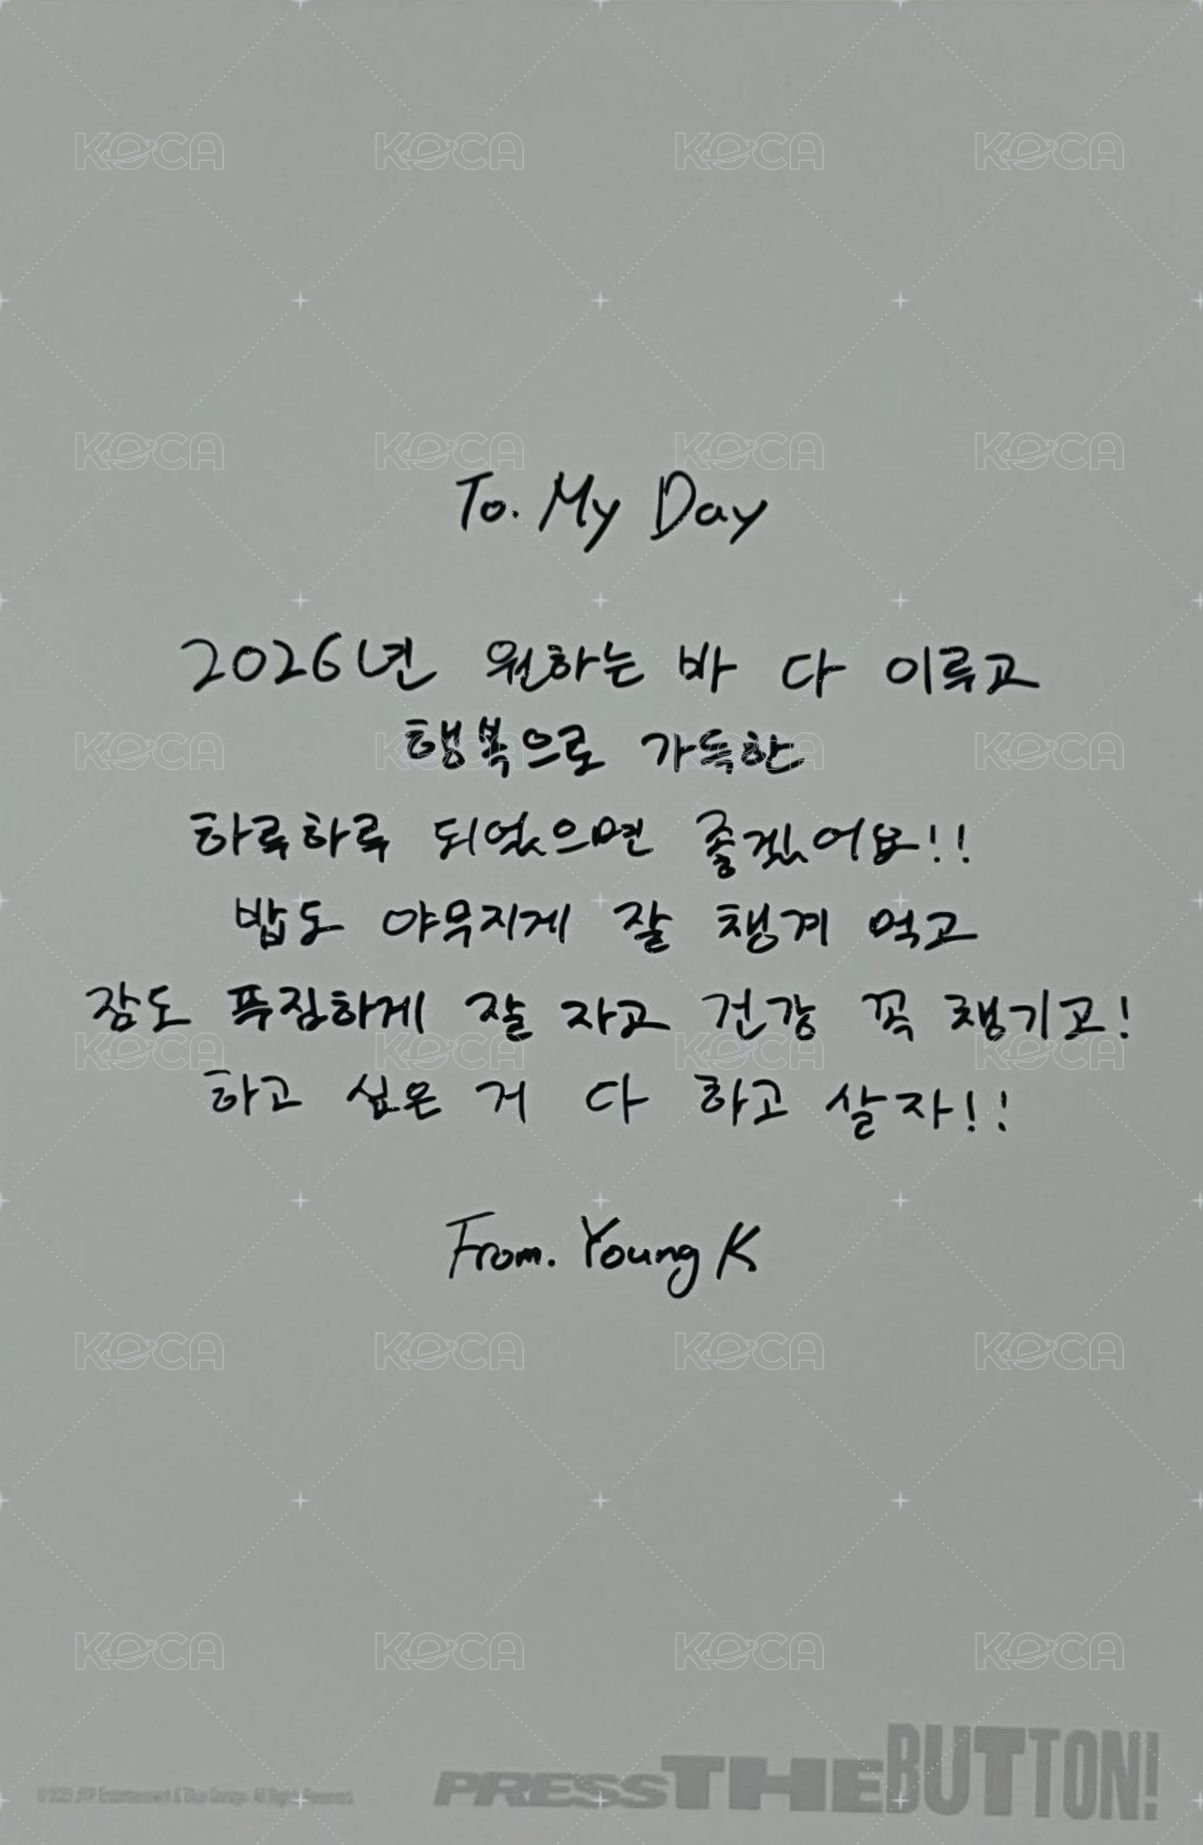 KOCA KOCA KOCA KOCA
KOCA KOCA KOCA KOCA
To. My Day
2026년 원하는 바 다 이루고
행복으로 가득한
KOCA KOCA KOCA KOCA
하루하루 되었으면 좋겠어요!!
밥도 야무지게 잘 챙겨 먹고
잠도 푹집하게 잘 자고 건강 꼭 챙기고!
KOCA KOCA KOCA KOCA
하고 싶은 거 다 하고 살자!!
From. Young K
KOCA KOCA KOCA KOCA
KOCA KOCA KOCA KOCA
PRESS THE BUTTON!
© 2025 JYP Entertainment & Blue Garage. All Rights Reserved.